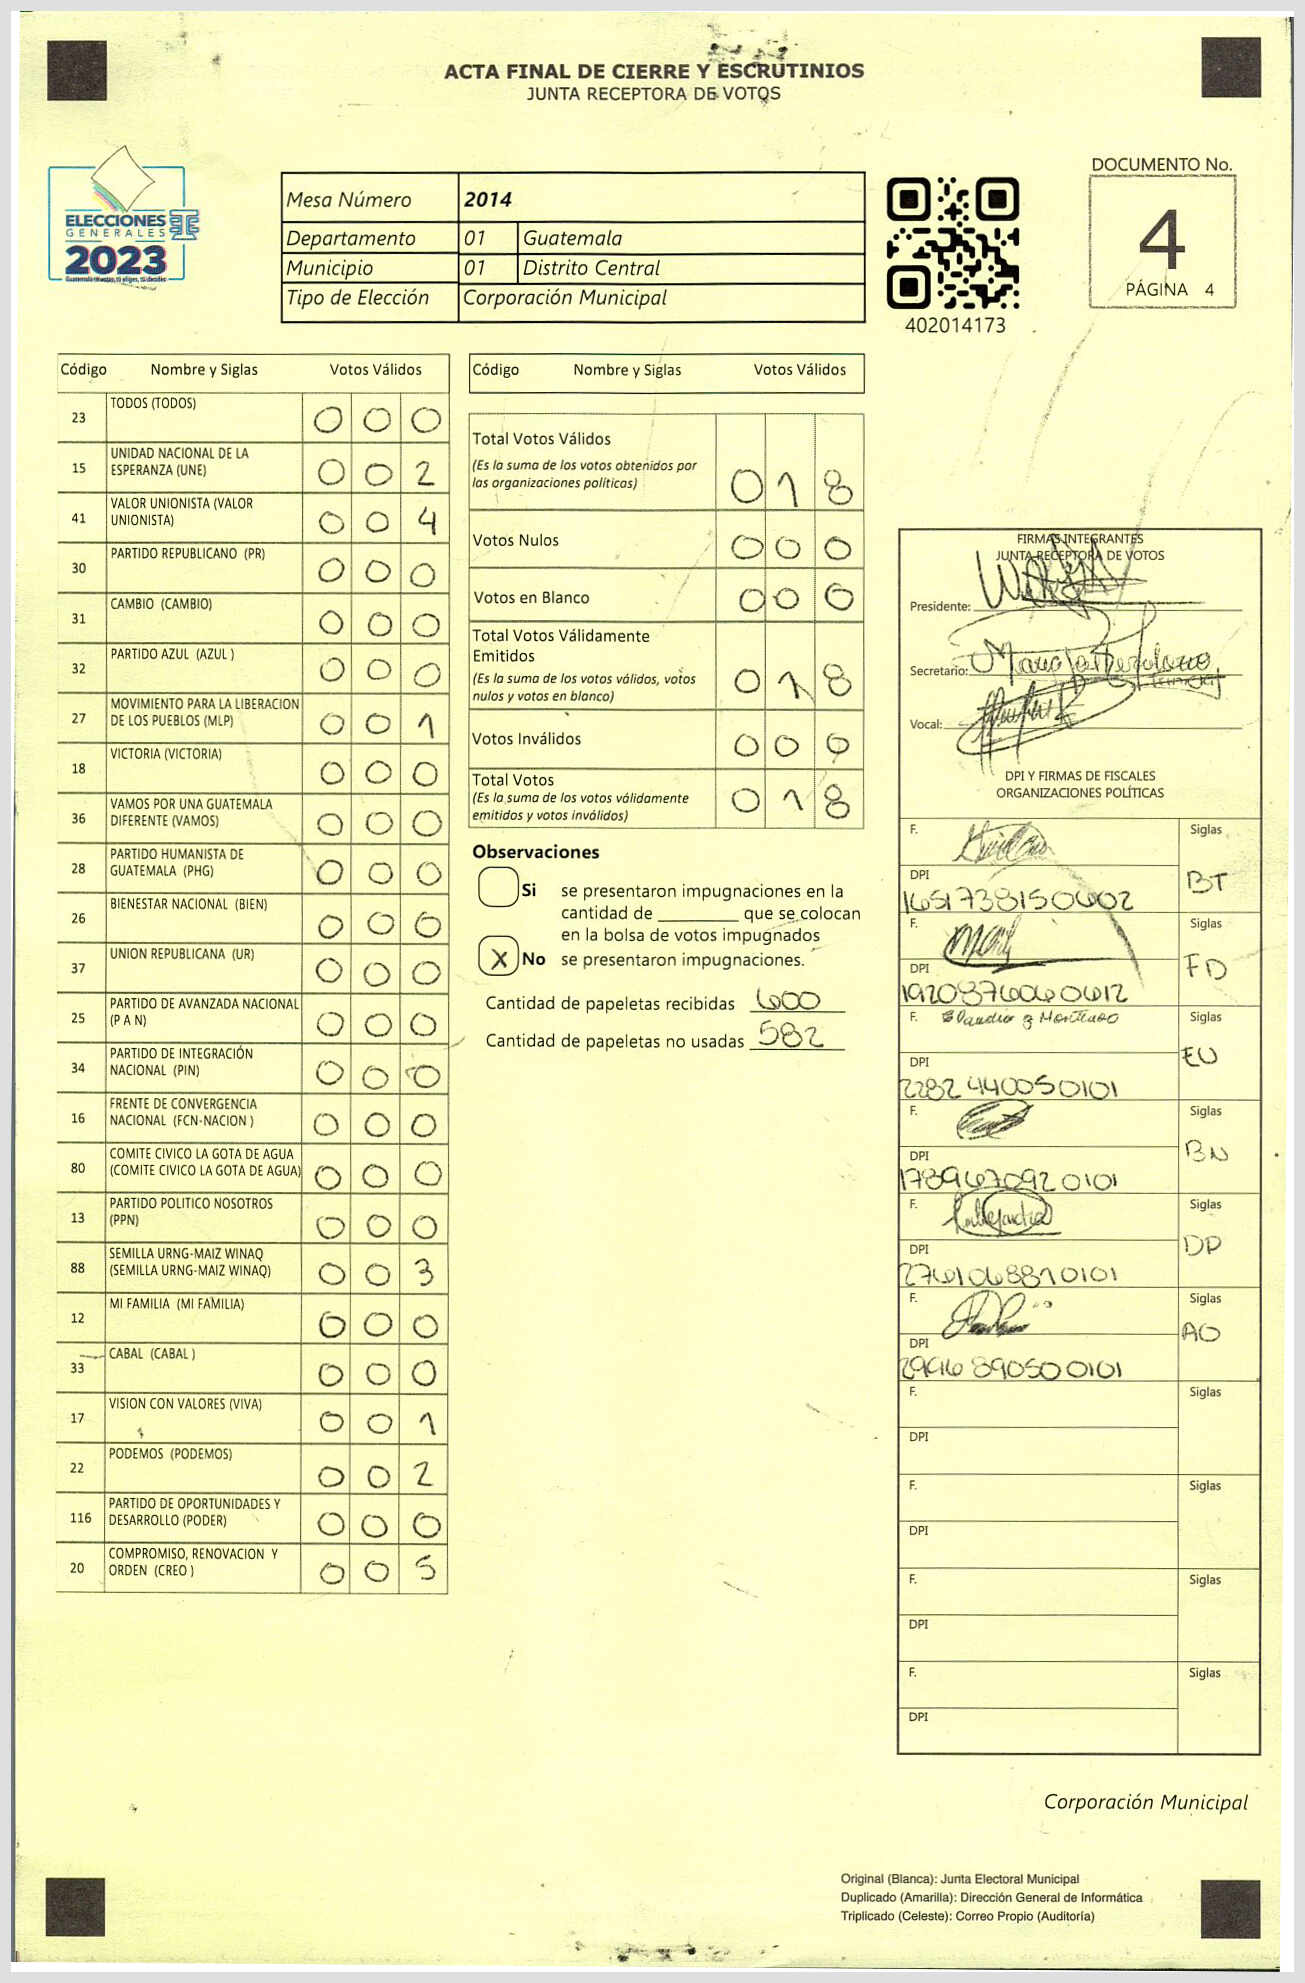 ACTA FINAL DE CIERRE Y ESCRUTINIOS
JUNTA RECEPTORA DE VOTOS
ELECCIONES
GENERALES
2023
Mesa Número 2014
Departamento 01 Guatemala
Municipio 01 Distrito Central
Tipo de Elección Corporación Municipal
402014173
DOCUMENTO No.
4
PÁGINA 4
Código Nombre y Siglas Votos Válidos
23 TODOS (TODOS) 0 0 0
15 UNIDAD NACIONAL DE LA
ESPERANZA (UNE) 0 0 2
41 VALOR UNIONISTA (VALOR
UNIONISTA) 0 0 4
30 PARTIDO REPUBLICANO (PR) 0 0 0
31 CAMBIO (CAMBIO) 0 0 0
32 PARTIDO AZUL (AZUL ) 0 0 0
27 MOVIMIENTO PARA LA LIBERACION
DE LOS PUEBLOS (MLP) 0 0 1
18 VICTORIA (VICTORIA) 0 0 0
36 VAMOS POR UNA GUATEMALA
DIFERENTE (VAMOS) 0 0 0
28 PARTIDO HUMANISTA DE
GUATEMALA (PHG) 0 0 0
26 BIENESTAR NACIONAL (BIEN) 0 0 0
37 UNION REPUBLICANA (UR) 0 0 0
25 PARTIDO DE AVANZADA NACIONAL
(P A N) 0 0 0
34 PARTIDO DE INTEGRACIÓN
NACIONAL (PIN) 0 0 0
16 FRENTE DE CONVERGENCIA
NACIONAL (FCN-NACION ) 0 0 0
80 COMITE CIVICO LA GOTA DE AGUA
(COMITE CIVICO LA GOTA DE AGUA) 0 0 0
13 PARTIDO POLITICO NOSOTROS
(PPN) 0 0 0
88 SEMILLA URNG-MAIZ WINAQ
(SEMILLA URNG-MAIZ WINAQ) 0 0 3
12 MI FAMILIA (MI FAMILIA) 0 0 0
33 CABAL (CABAL ) 0 0 0
17 VISION CON VALORES (VIVA) 0 0 1
22 PODEMOS (PODEMOS) 0 0 2
116 PARTIDO DE OPORTUNIDADES Y
DESARROLLO (PODER) 0 0 0
20 COMPROMISO, RENOVACION Y
ORDEN (CREO ) 0 0 5
Código Nombre y Siglas Votos Válidos
Total Votos Válidos
(Es la suma de los votos obtenidos por
las organizaciones políticas) 0 1 8
Votos Nulos 0 0 0
Votos en Blanco 0 0 0
Total Votos Válidamente
Emitidos
(Es la suma de los votos válidos, votos
nulos y votos en blanco) 0 1 8
Votos Inválidos 0 0 0
Total Votos
(Es la suma de los votos válidamente
emitidos y votos inválidos) 0 1 8
Observaciones
Si se presentaron impugnaciones en la
cantidad de ________ que se colocan
en la bolsa de votos impugnados
X No se presentaron impugnaciones.
Cantidad de papeletas recibidas 600
Cantidad de papeletas no usadas 582
FIRMAS INTEGRANTES
JUNTA RECEPTORA DE VOTOS
Presidente:
Secretario:
Vocal:
DPI Y FIRMAS DE FISCALES
ORGANIZACIONES POLÍTICAS
F. Siglas
DPI BT
1651738150602
F. Siglas
DPI FD
1920876060612
F. Siglas
DPI EU
2282440050101
F. Siglas
DPI BN
1789670920101
F. Siglas
DPI DP
2761068810101
F. Siglas
DPI AO
2996890500101
F. Siglas
DPI
F. Siglas
DPI
F. Siglas
DPI
F. Siglas
DPI
Corporación Municipal
Original (Blanca): Junta Electoral Municipal
Duplicado (Amarilla): Dirección General de Informática
Triplicado (Celeste): Correo Propio (Auditoría)